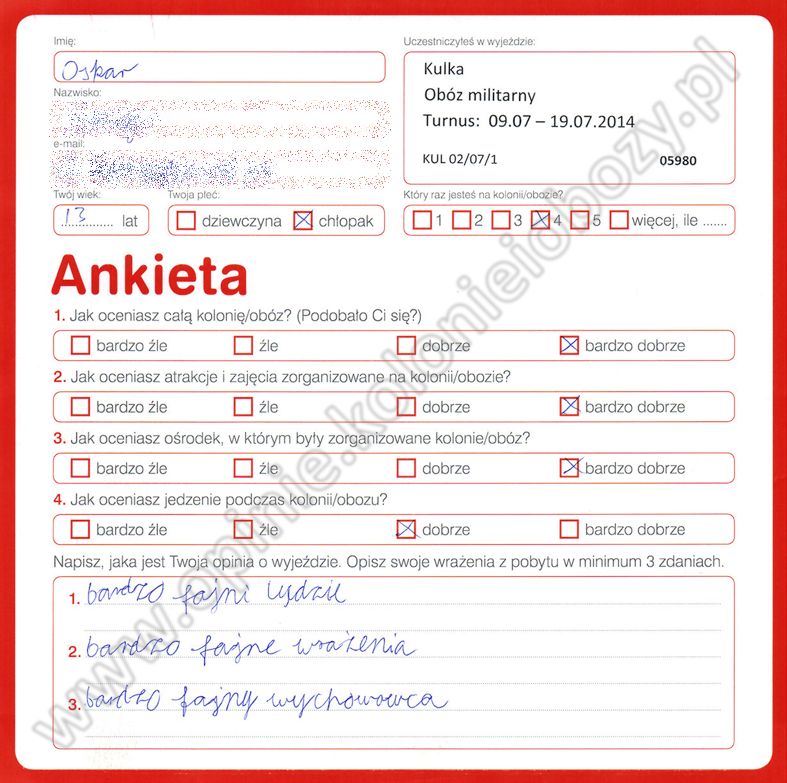 Imię:
Oskar
Nazwisko:
e-mail:
Twój wiek:
13 lat
Twoja płeć:
dziewczyna chłopak
Uczestniczyłeś w wyjeździe:
Kulka
Obóz militarny
Turnus: 09.07 – 19.07.2014
KUL 02/07/1 05980
Który raz jesteś na kolonii/obozie?
1 2 3 4 5 więcej, ile .......
Ankieta
1. Jak oceniasz całą kolonię/obóz? (Podobało Ci się?)
bardzo źle źle dobrze bardzo dobrze
2. Jak oceniasz atrakcje i zajęcia zorganizowane na kolonii/obozie?
bardzo źle źle dobrze bardzo dobrze
3. Jak oceniasz ośrodek, w którym były zorganizowane kolonie/obóz?
bardzo źle źle dobrze bardzo dobrze
4. Jak oceniasz jedzenie podczas kolonii/obozu?
bardzo źle źle dobrze bardzo dobrze
Napisz, jaka jest Twoja opinia o wyjeździe. Opisz swoje wrażenia z pobytu w minimum 3 zdaniach.
1. bardzo fajni lydzie
2. bardzo fajne wrażenia
3. bardzo fajny wychowowca
www.opinie.kolonieiobozy.pl